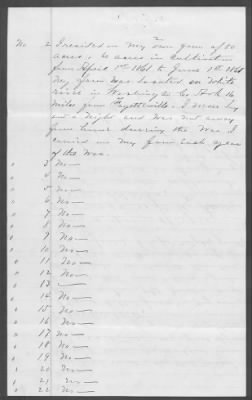 No 2 I resided on my own farm of 80
acres, 60 acres in cultivation
from April 1st 1861 to June 1st 1865
My farm was located on White
river in Washington Co Ark 16
miles from Fayetteville. I never lay
out a night and was not away
from home during the War I
carried on my farm each year
of the War.
" 3 No—
" 4 No—
" 5 No—
" 6 No—
" 7 No—
" 8 No—
" 9 No—
" 10 No—
" 11 No—
" 12 No—
" 13 —
" 14 No—
" 15 No—
" 16 No—
" 17 No—
" 18 No—
" 19 No—
" 20 No—
" 21 No—
" 22 No—